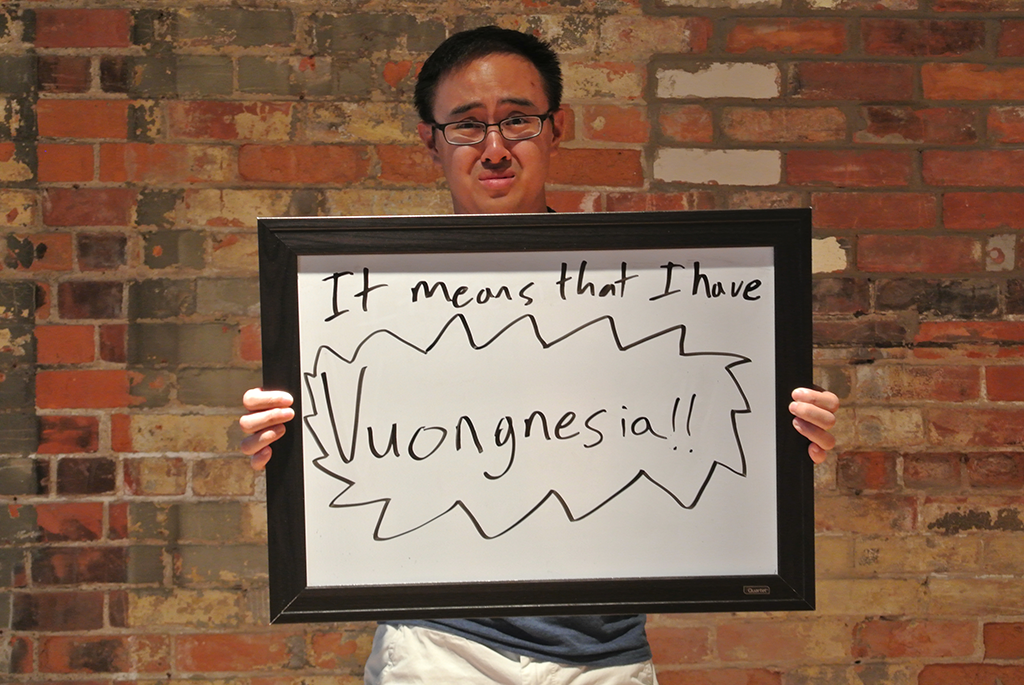 It means that I have
Vuongnesia!!
Quartet